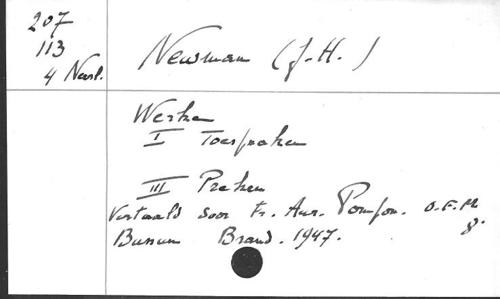 207
113
4 Navl.
Newman (J. H.)
Werken
I Toespraken
III Preken
Vertaald door Fr. Aur. Pompen. O.F.M
8.
Bussum Brand. 1947.